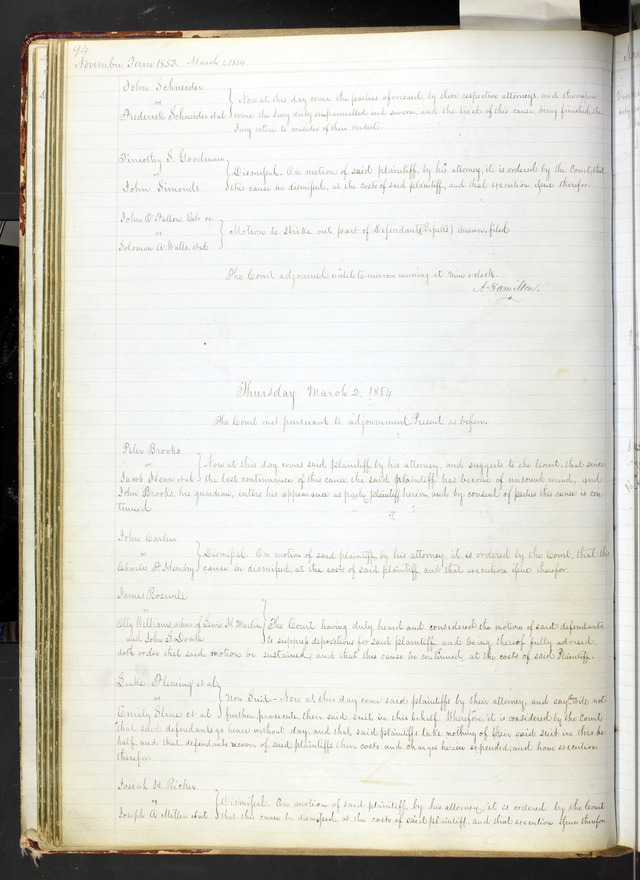 94
November Term 1853. March 1, 1854
John Schneider
vs
Frederick Schneider et al
Now at this day come the parties aforesaid by their respective attorneys, and thereupon
come the Jury duly empannelled and sworn, and the trial of this cause being finished, the
Jury retire to consider of their verdict.
Timothy S. Goodman
vs
John Simonds
Dismissal. On motion of said plaintiff, by his attorney, it is ordered by the Court, that
this cause be dismissed, at the costs of said plaintiff, and that execution issue therefor.
John O'Fallon,
vs
Solomon A. Watts, et al
Motion to strike out part of Defendant's answer, filed
The Court adjourned until tomorrow morning at nine oclock.
A. Hamilton.
Thursday March 2, 1854
The Court met pursuant to adjournment. Present as before.
Peter Brooks
vs
Jacob et al
Now at this day comes said plaintiff by his attorney, and suggests to the Court, that since
the last continuance of this cause the said plaintiff has become of unsound mind, and
John Brooks, his guardian, enters his appearance as party plaintiff herein, and by consent of parties this cause is con-
tinued
John Carlin
vs
Charles F. Hendry
Dismissal. On motion of said plaintiff, by his attorney, it is ordered by the Court, that this
cause be dismissed, at the costs of said plaintiff and that execution issue therefor.
James
vs
Williams, admr of Lewis M. Martin
and John D.
The Court having duly heard and considered the motion of said defendants,
to suppress depositions for said plaintiff, and being thereof fully advised,
doth order that said motion be sustained, and that this cause be continued, at the costs of said plaintiff.
Luke Fleming et al
vs
Emily Stine et al
Non Suit. Now at this day come said plaintiffs by their attorney, and say they will not
further prosecute their said suit in this behalf. Wherefore, it is considered by the Court
that said defendants go hence without day, and that said plaintiffs take nothing of their said suit in this be-
half, and that defendants recover of said plaintiffs their costs and charges herein expended, and have execution
therefor.
Josiah W. Richer
vs
Joseph A. Miller et al
Dismissal. On motion of said plaintiff, by his attorney, it is ordered by the Court
that this cause be dismissed, at the costs of said plaintiff, and that execution issue therefor